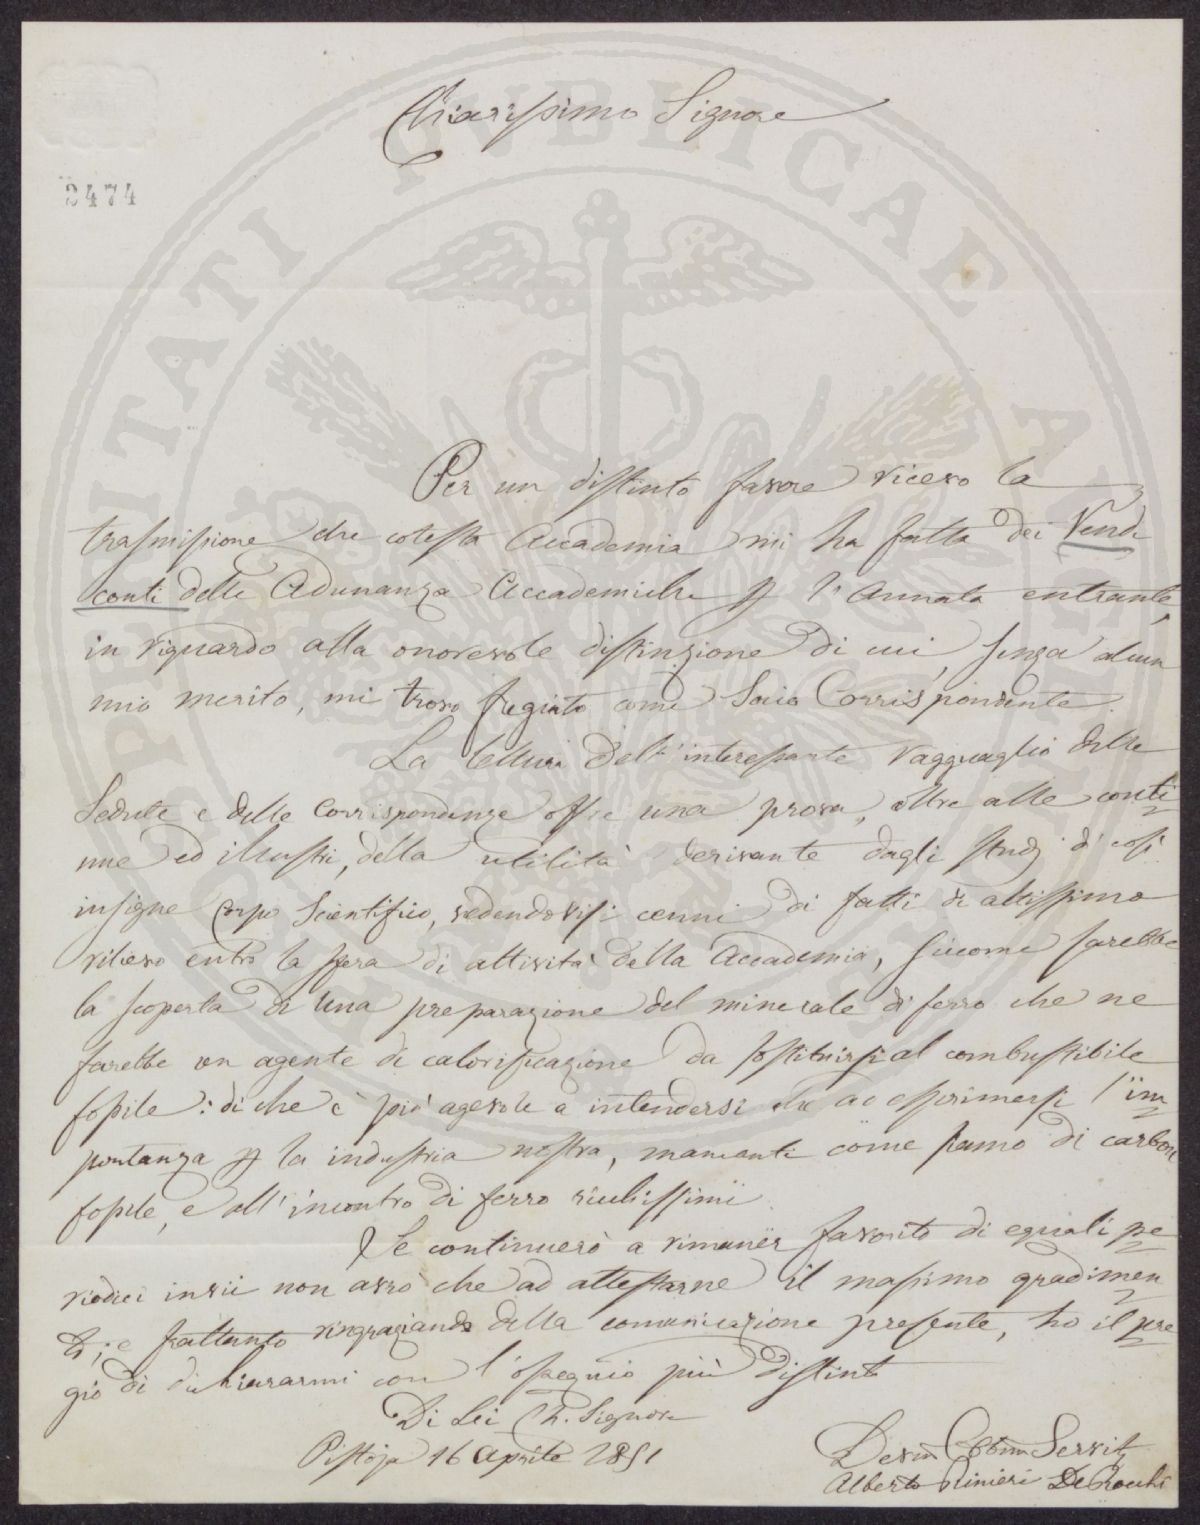 Chiarissimo Signore
2474
PROSPERITATI PVBLICAE AVGENDAE
Per un distinto favore ricevo la
trasmissione che cotesta Accademia mi ha fatta dei Rendi
conti delle Adunanza Accademiche p l'Annata entrante,
in riguardo alla onorevole distinzione di cui, senza alcun
mio merito, mi trovo fregiato come Socio Corrispondente.
La lettura dell'interessante ragguaglio delle
Sedute e delle Corrispondenze offre una prova, oltre alle conti
nue ed illustri, della utilità derivante dagli studj di così
insigne Corpo Scientifico, vedendovisi cenni di fatti di altissimo
rilievo entro la sfera di attività della Accademia, siccome sarebbe
la scoperta di una preparazione del minerale di ferro che ne
farebbe un agente di calorificazione da sostituirsi al combustibile
fossile: di che è più agevole a intendersi che ad esprimersi l'im
portanza p la industria nostra, mancanti come siamo di carbone
fossile, e all'incontro di ferro ricchissimi.
Se continuerò a rimaner favorito di eguali pe
riodici invii non avrò che ad attestarne il massimo gradimen
to; e frattanto ringraziando della comunicazione presente, ho il pre
gio di dichiararmi con l'ossequio più distinto
Di Lei Ch. Signore
Pistoja 16 Aprile 1851
Devm Obbm Servit
Alberto Rinieri De Rocchi